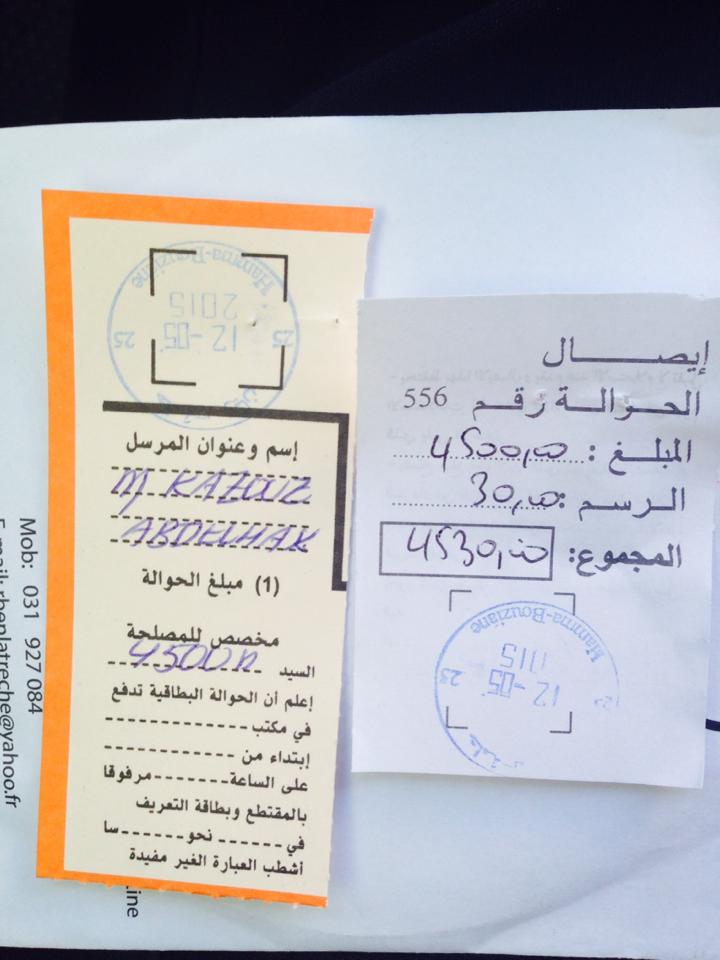 Hamma-Bouziane
12-05
2015
25 25
إسم وعنوان المرسل
M KAZOUZ
ABDELHAK
(1) مبلغ الحوالة
مخصص للمصلحة
4500
السيد
إعلم أن الحوالة البطاقية تدفع
في مكتب
إبتداء من
على الساعة مرفوقا
بالمقتطع وبطاقة التعريف
في نحو سا
أشطب العبارة الغير مفيدة
إيصال
الحوالة رقم 556
المبلغ : 4500,00
الرسم : 30,00
المجموع: 4530,00
Hamma-Bouziane
12-05
25
Mob: 031 927 084
E-mail: rbenlatreche@yahoo.fr
ine